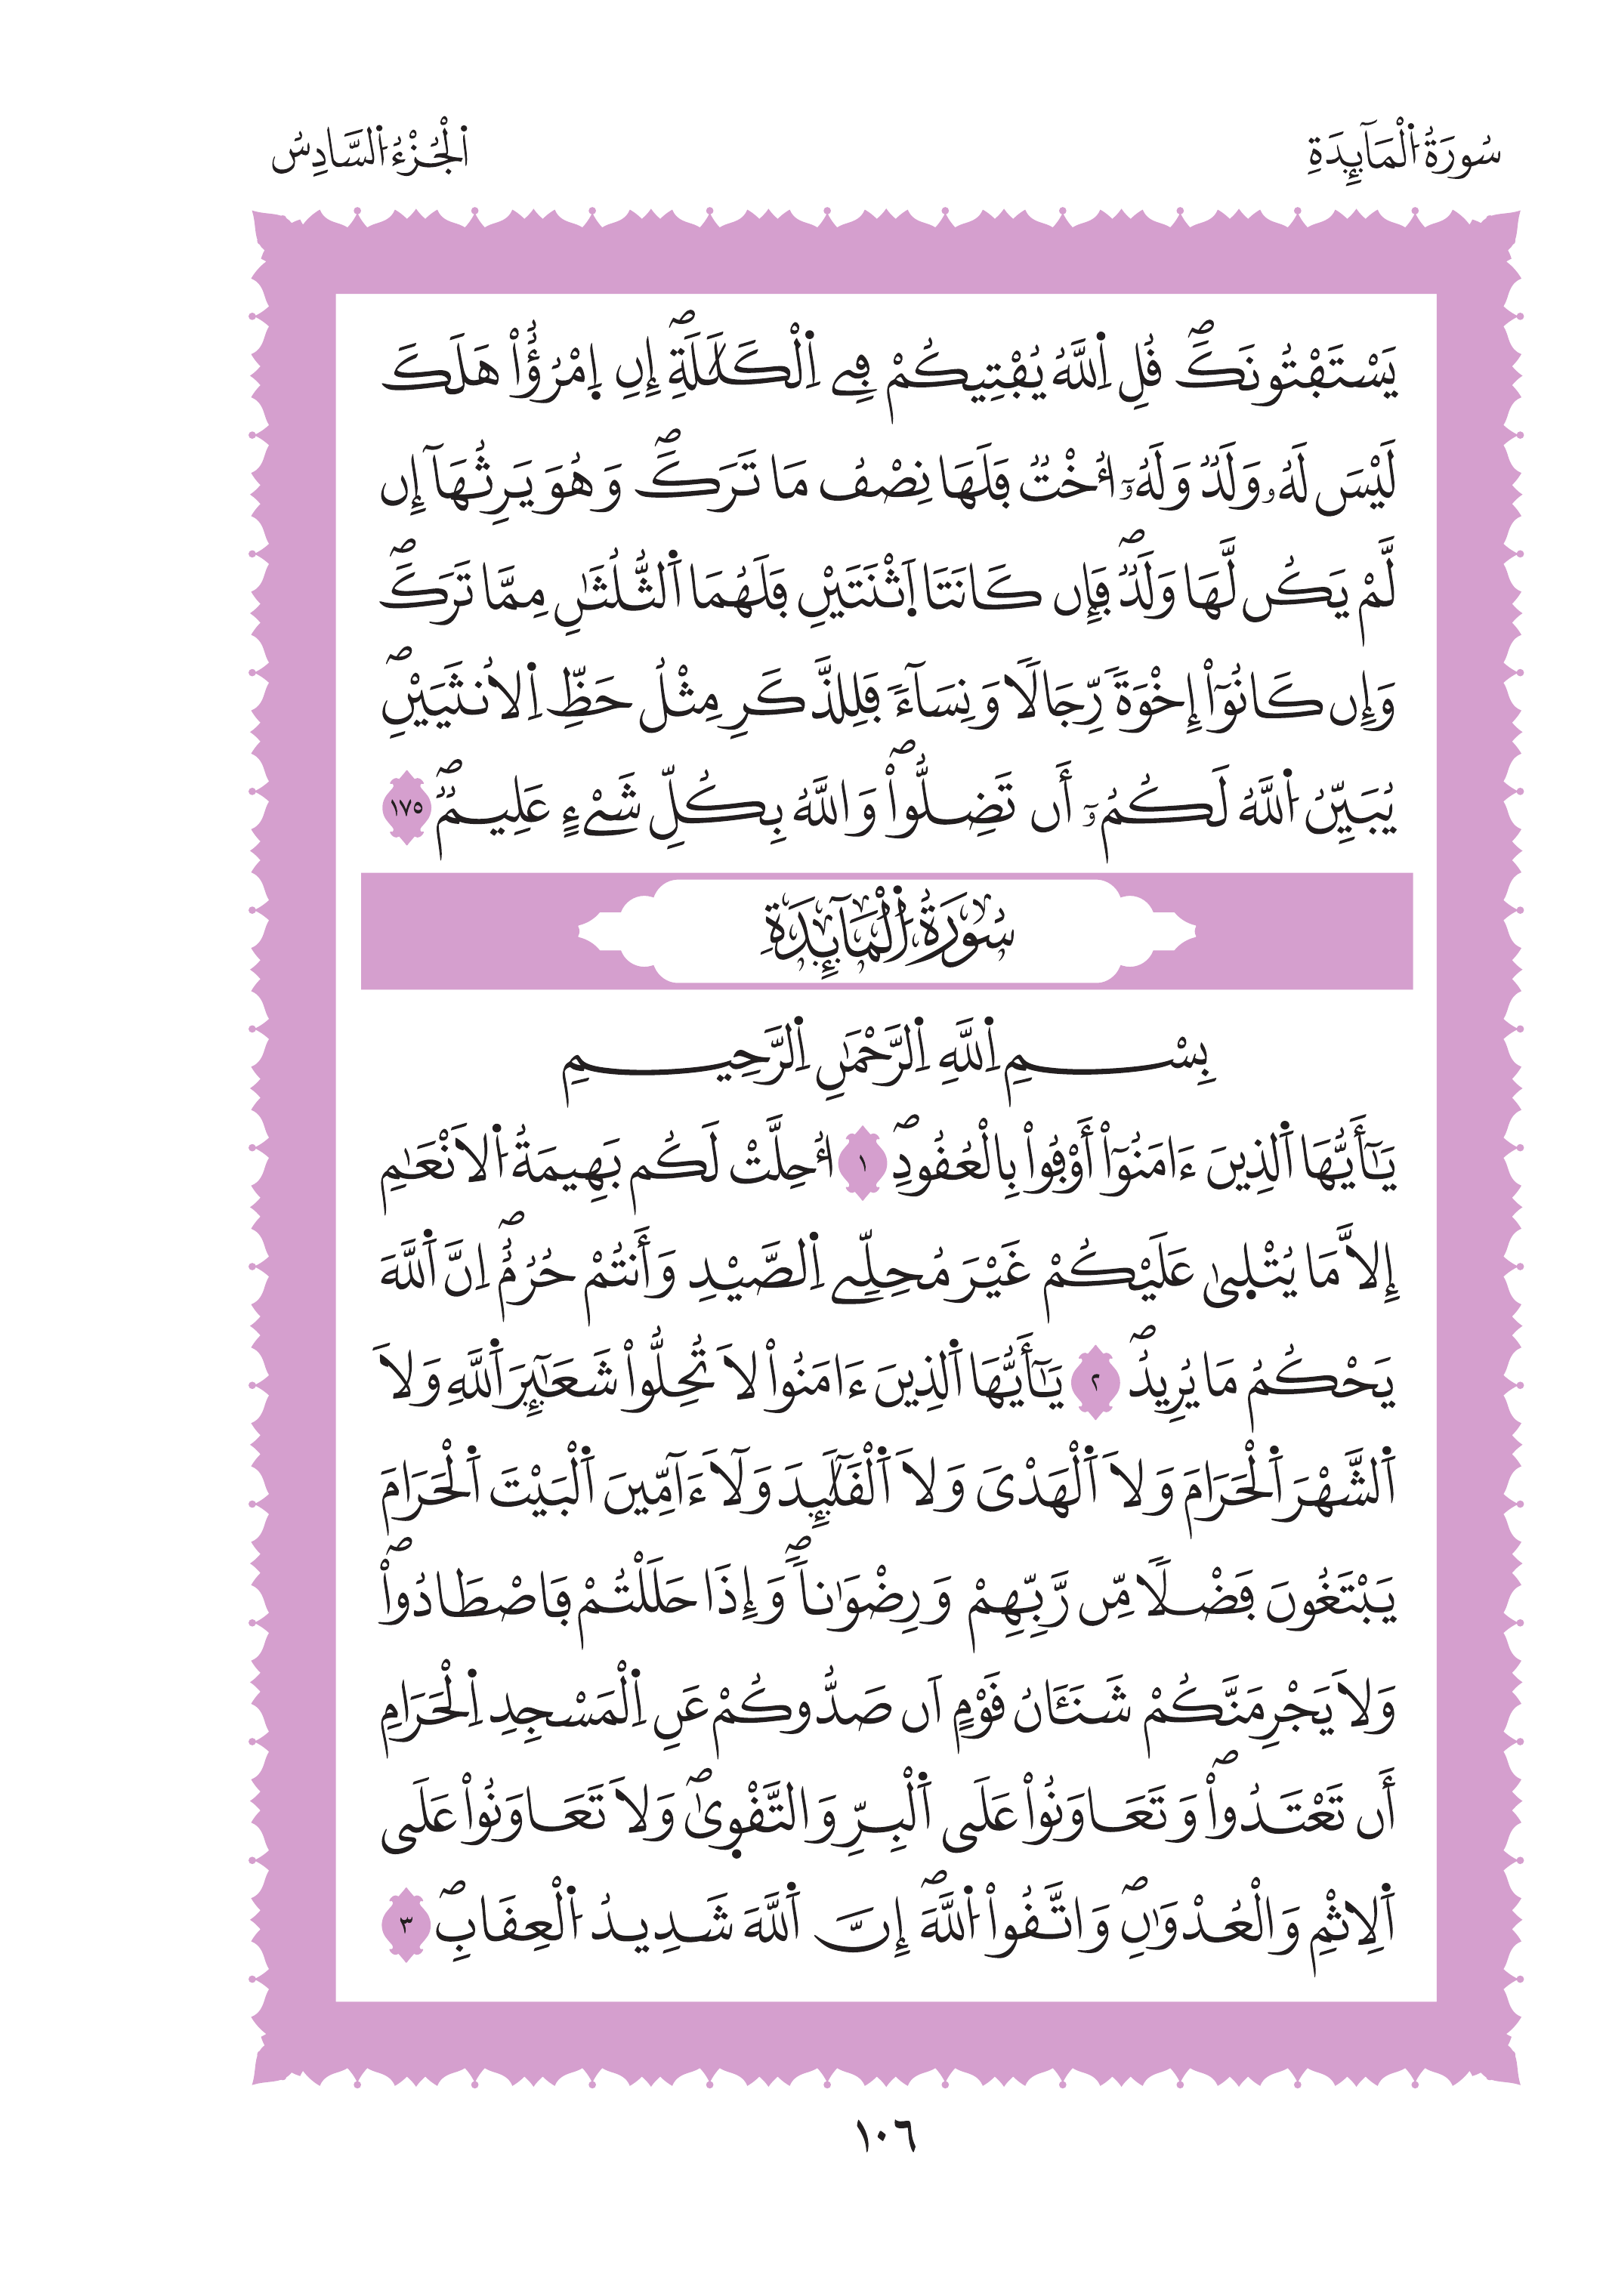 سُورَةُ اُ۬لْمَآئِدَةِ
اَ۬لْجُزْءُ اُ۬لسَّادِسُ
يَسْتَفْتُونَكَۖ قُلِ اِ۬للَّهُ يُفْتِيكُمْ فِے اِ۬لْكَلَٰلَةِۖ إِنِ اِ۪مْرُؤٌاْ هَلَكَ
لَيْسَ لَهُۥ وَلَدٞ وَلَهُۥٓ أُخْتٞ فَلَهَا نِصْفُ مَا تَرَكَۖ وَهُوَ يَرِثُهَآ إِن
لَّمْ يَكُن لَّهَا وَلَدٞۖ فَإِن كَانَتَا اَ۪ثْنَتَيْنِ فَلَهُمَا اَ۬لثُّلُثَٰنِ مِمَّا تَرَكَۖ
وَإِن كَانُوٓاْ إِخْوَةٗ رِّجَالٗا وَنِسَآءٗ فَلِلذَّكَرِ مِثْلُ حَظِّ اِ۬لُانثَيَيْنِۖ
يُبَيِّنُ اُ۬للَّهُ لَكُمُۥٓ أَن تَضِلُّواْۖ وَاللَّهُ بِكُلِّ شَےْءٍ عَلِيمٞۖ ١٧٥
سُورَةُ اُ۬لْمَآئِدَةِ
بِسْمِ اِ۬للَّهِ اِ۬لرَّحْمَٰنِ اِ۬لرَّحِيمِ
يَٰٓأَيُّهَا اَ۬لذِينَ ءَامَنُوٓاْ أَوْفُواْ بِالْعُقُودِۖ ١ أُحِلَّتْ لَكُم بَهِيمَةُ اُ۬لَانْعَٰمِ
إِلَّا مَا يُتْل۪ىٰ عَلَيْكُمْ غَيْرَ مُحِلِّے اِ۬لصَّيْدِ وَأَنتُمْ حُرُمٌۖ اِنَّ اَ۬للَّهَ
يَحْكُمُ مَا يُرِيدُۖ ٢ يَٰٓأَيُّهَا اَ۬لذِينَ ءَامَنُواْ لَا تُحِلُّواْ شَعَٰٓئِرَ اَ۬للَّهِ وَلَا
اَ۬لشَّهْرَ اَ۬لْحَرَامَ وَلَا اَ۬لْهَدْيَ وَلَا اَ۬لْقَلَٰٓئِدَ وَلَآ ءَآمِّينَ اَ۬لْبَيْتَ اَ۬لْحَرَامَ
يَبْتَغُونَ فَضْلٗا مِّن رَّبِّهِمْ وَرِضْوَٰناٗۖ وَإِذَا حَلَلْتُمْ فَاصْطَادُواْۖ
وَلَا يَجْرِمَنَّكُمْ شَنَـَٔانُ قَوْمٍ اَن صَدُّوكُمْ عَنِ اِ۬لْمَسْجِدِ اِ۬لْحَرَامِ
أَن تَعْتَدُواْۖ وَتَعَاوَنُواْ عَلَى اَ۬لْبِرِّ وَالتَّقْو۪ىٰۖ وَلَا تَعَاوَنُواْ عَلَى
اَ۬لِاثْمِ وَالْعُدْوَٰنِۖ وَاتَّقُواْ اُ۬للَّهَۖ إِنَّ اَ۬للَّهَ شَدِيدُ اُ۬لْعِقَابِۖ ٣
١٠٦